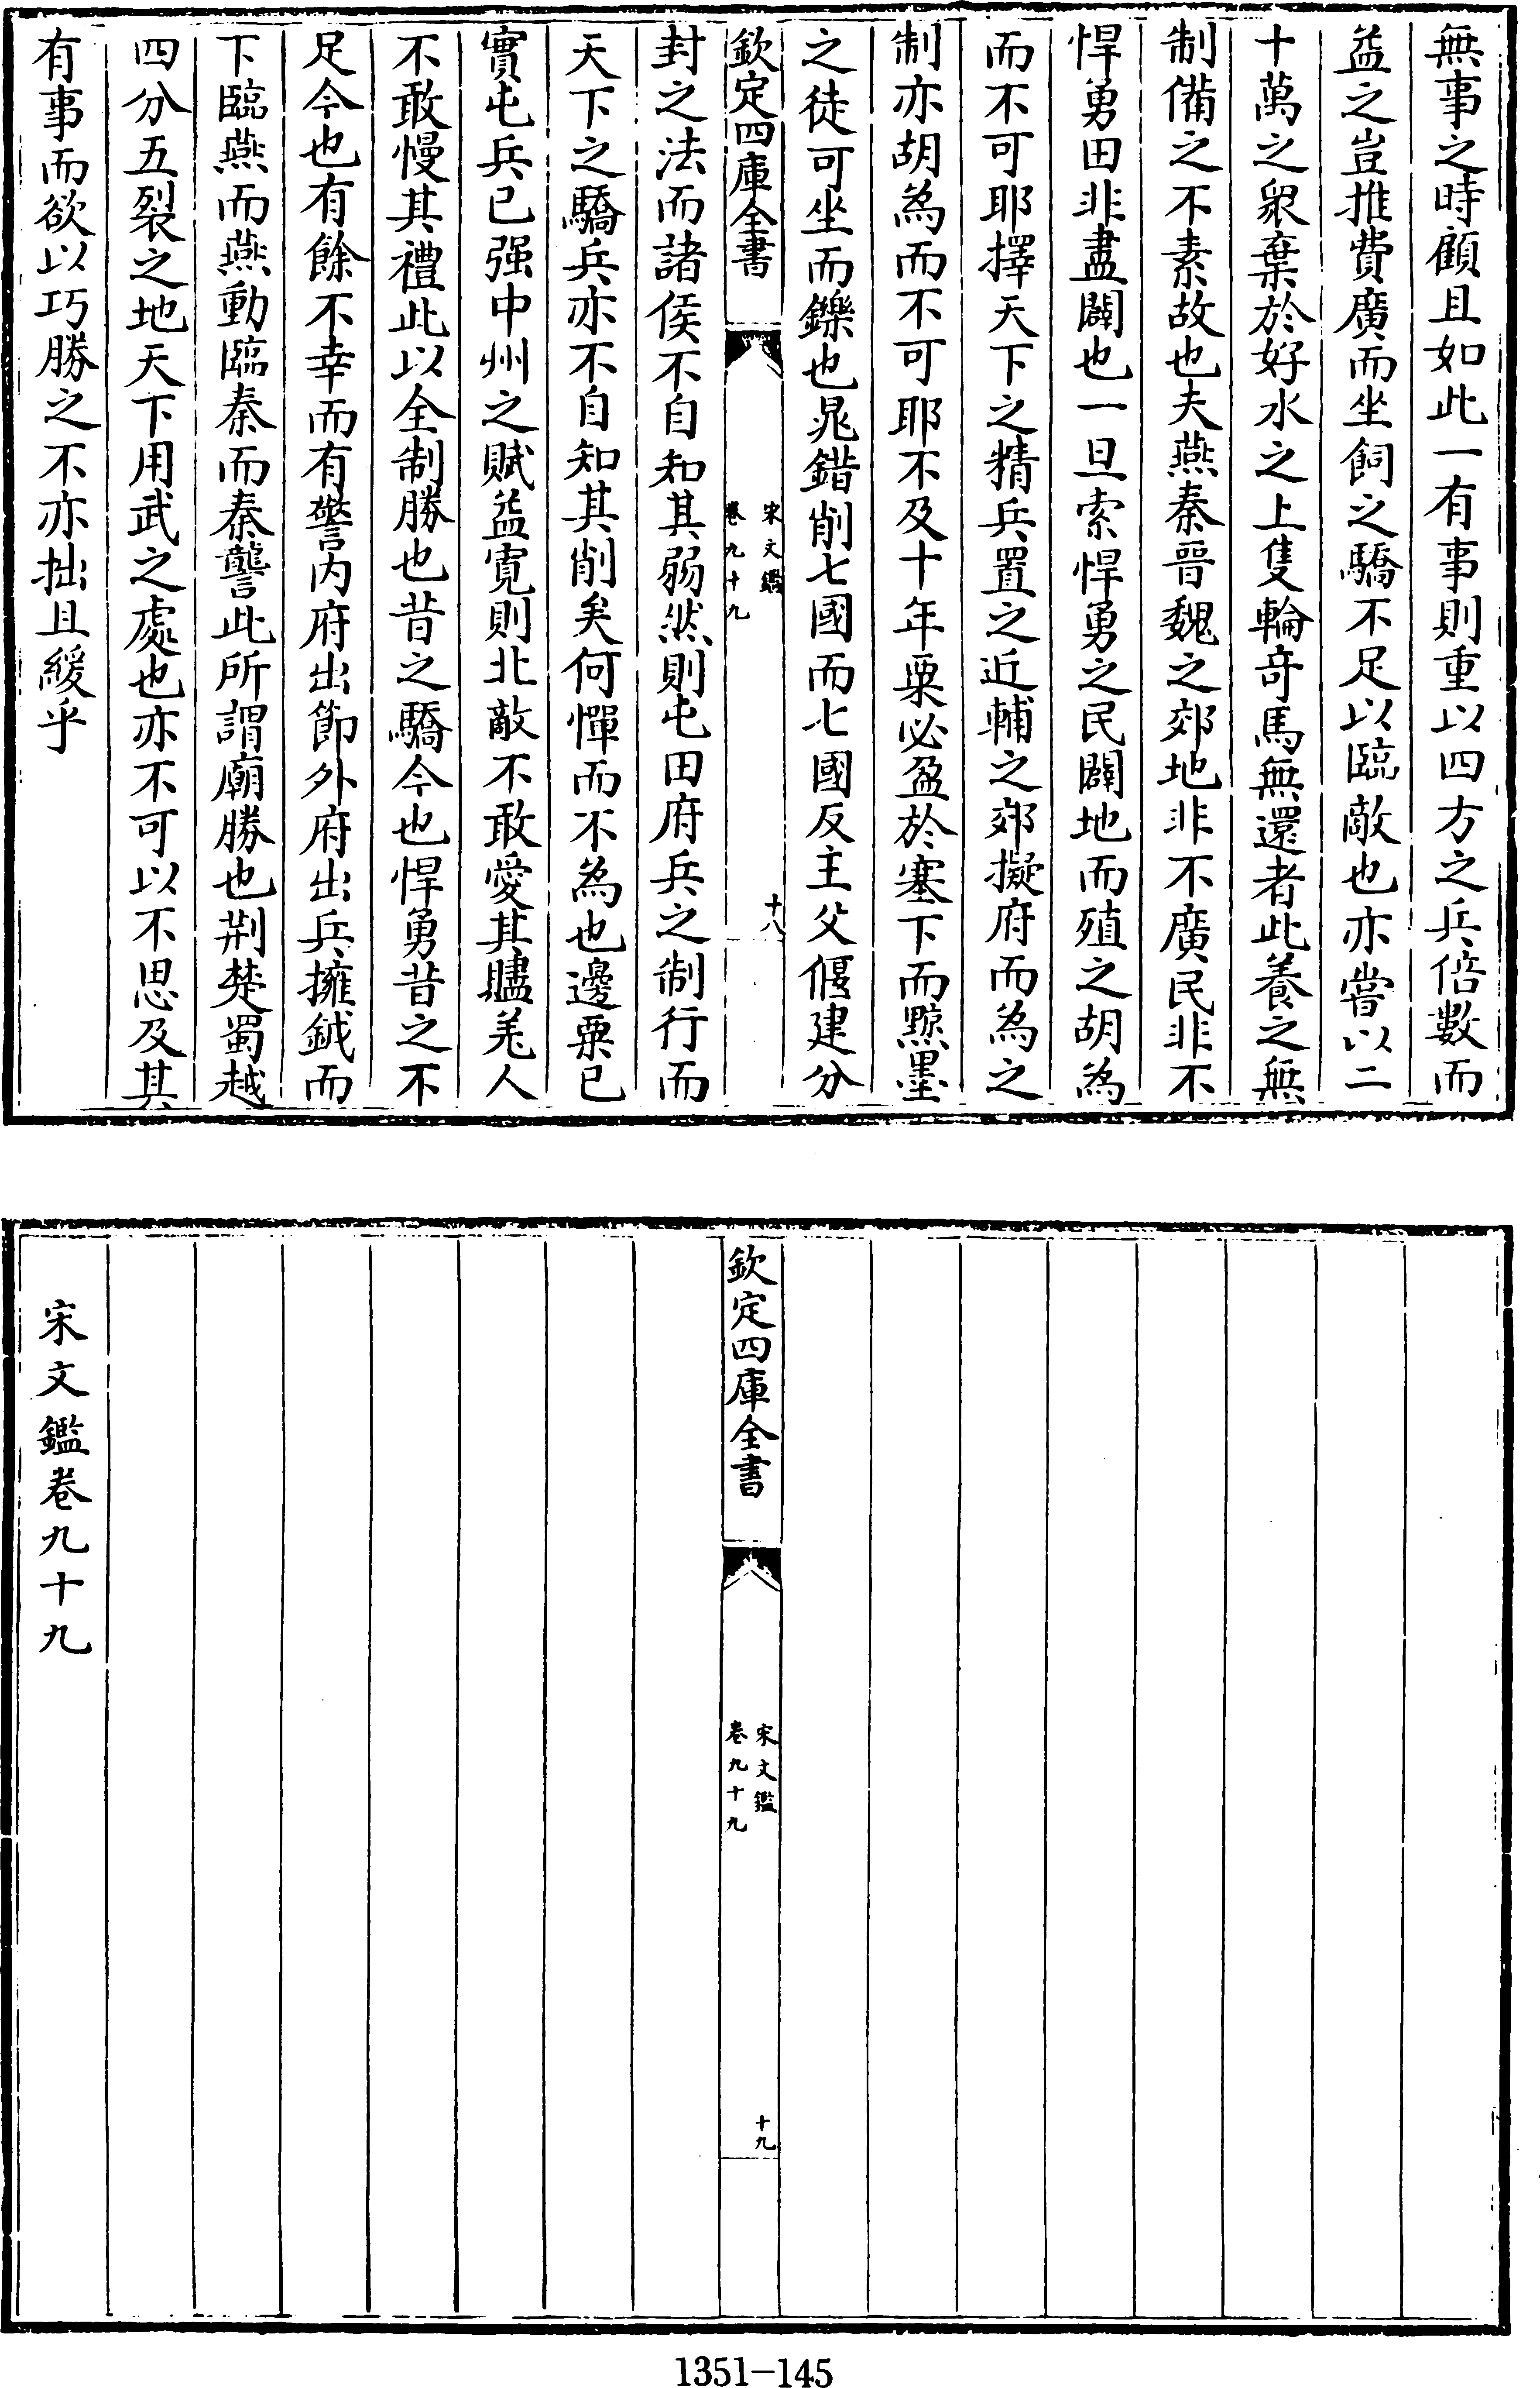 無事之時顧且如此一有事則重以四方之兵倍數而
益之豈推費廣而坐飼之驕不足以臨敵也亦嘗以二
十萬之衆棄於好水之上隻輪竒馬無還者此養之無
制備之不素故也夫燕秦晉魏之郊地非不廣民非不
悍勇田非盡闢也一旦索悍勇之民闢地而殖之胡為
而不可耶擇天下之精兵置之近輔之郊擬府而為之
制亦胡為而不可耶不及十年粟必盈於塞下而黥墨
之徒可坐而鑠也晁錯削七國而七國反主父偃建分
欽定四庫全書
宋文鑑
卷九十九
十八
封之法而諸侯不自知其弱然則屯田府兵之制行而
天下之驕兵亦不自知其削矣何憚而不為也邊粟已
實屯兵已强中州之賦益寛則北敵不敢愛其贐羌人
不敢慢其禮此以全制勝也昔之驕今也悍勇昔之不
足今也有餘不幸而有警内府出節外府出兵擁鉞而
下臨燕而燕動臨秦而秦讋此所謂廟勝也荆楚蜀越
四分五裂之地天下用武之處也亦不可以不思及其
有事而欲以巧勝之不亦拙且緩乎
欽定四庫全書
宋文鑑
卷九十九
十九
宋文鑑卷九十九
1351-145